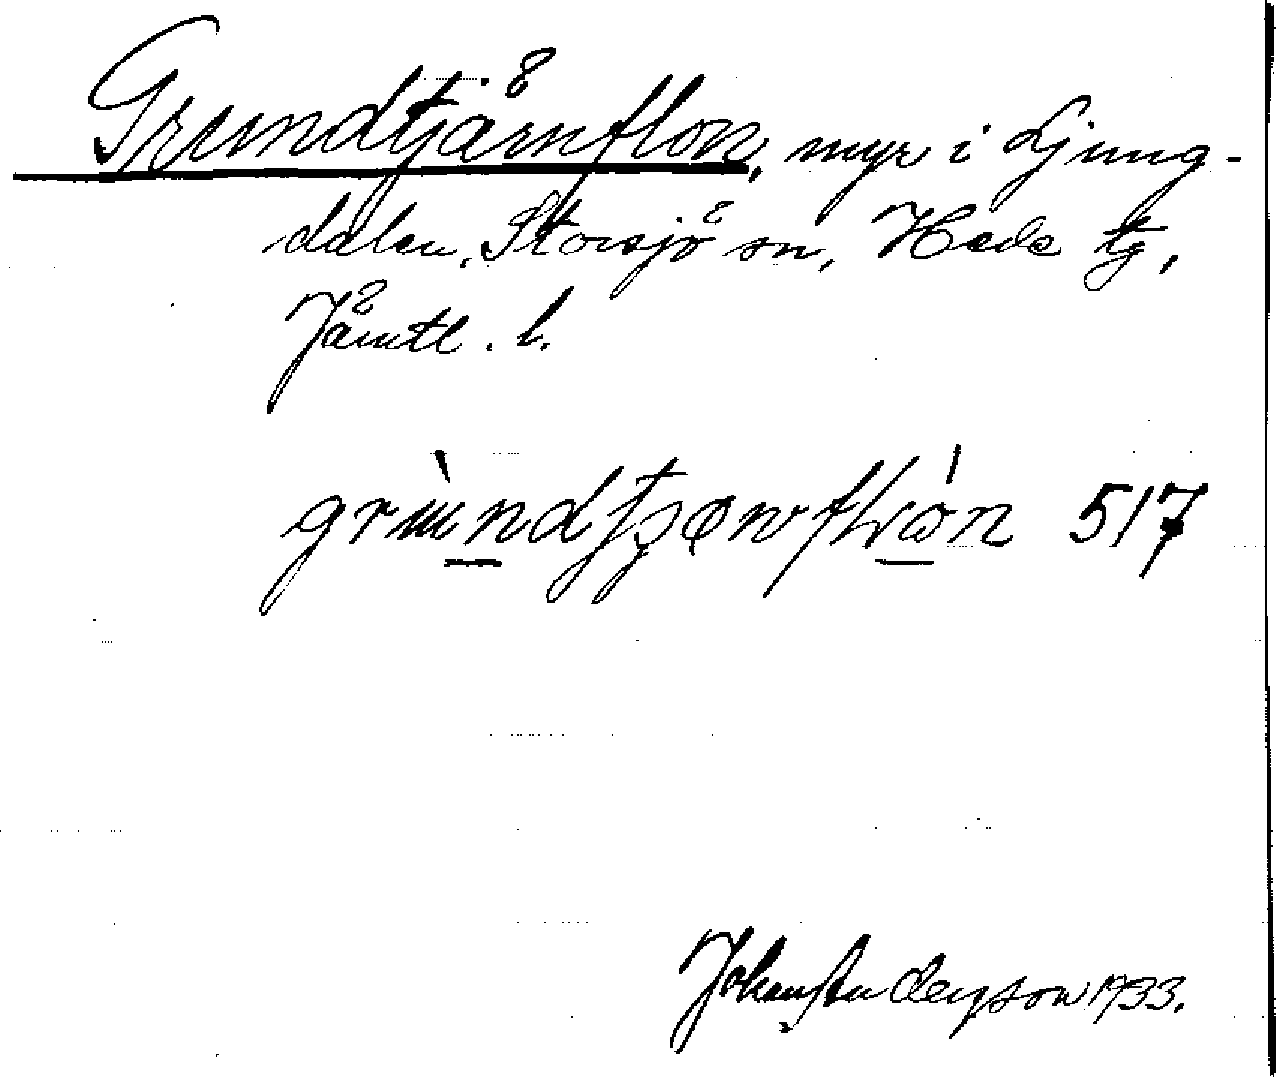 Grundtjärnflon, myr i Ljung-
dalen, Storsjö sn, Hede tg,
Jämtl. l.
517
Johan Anderson 1933.